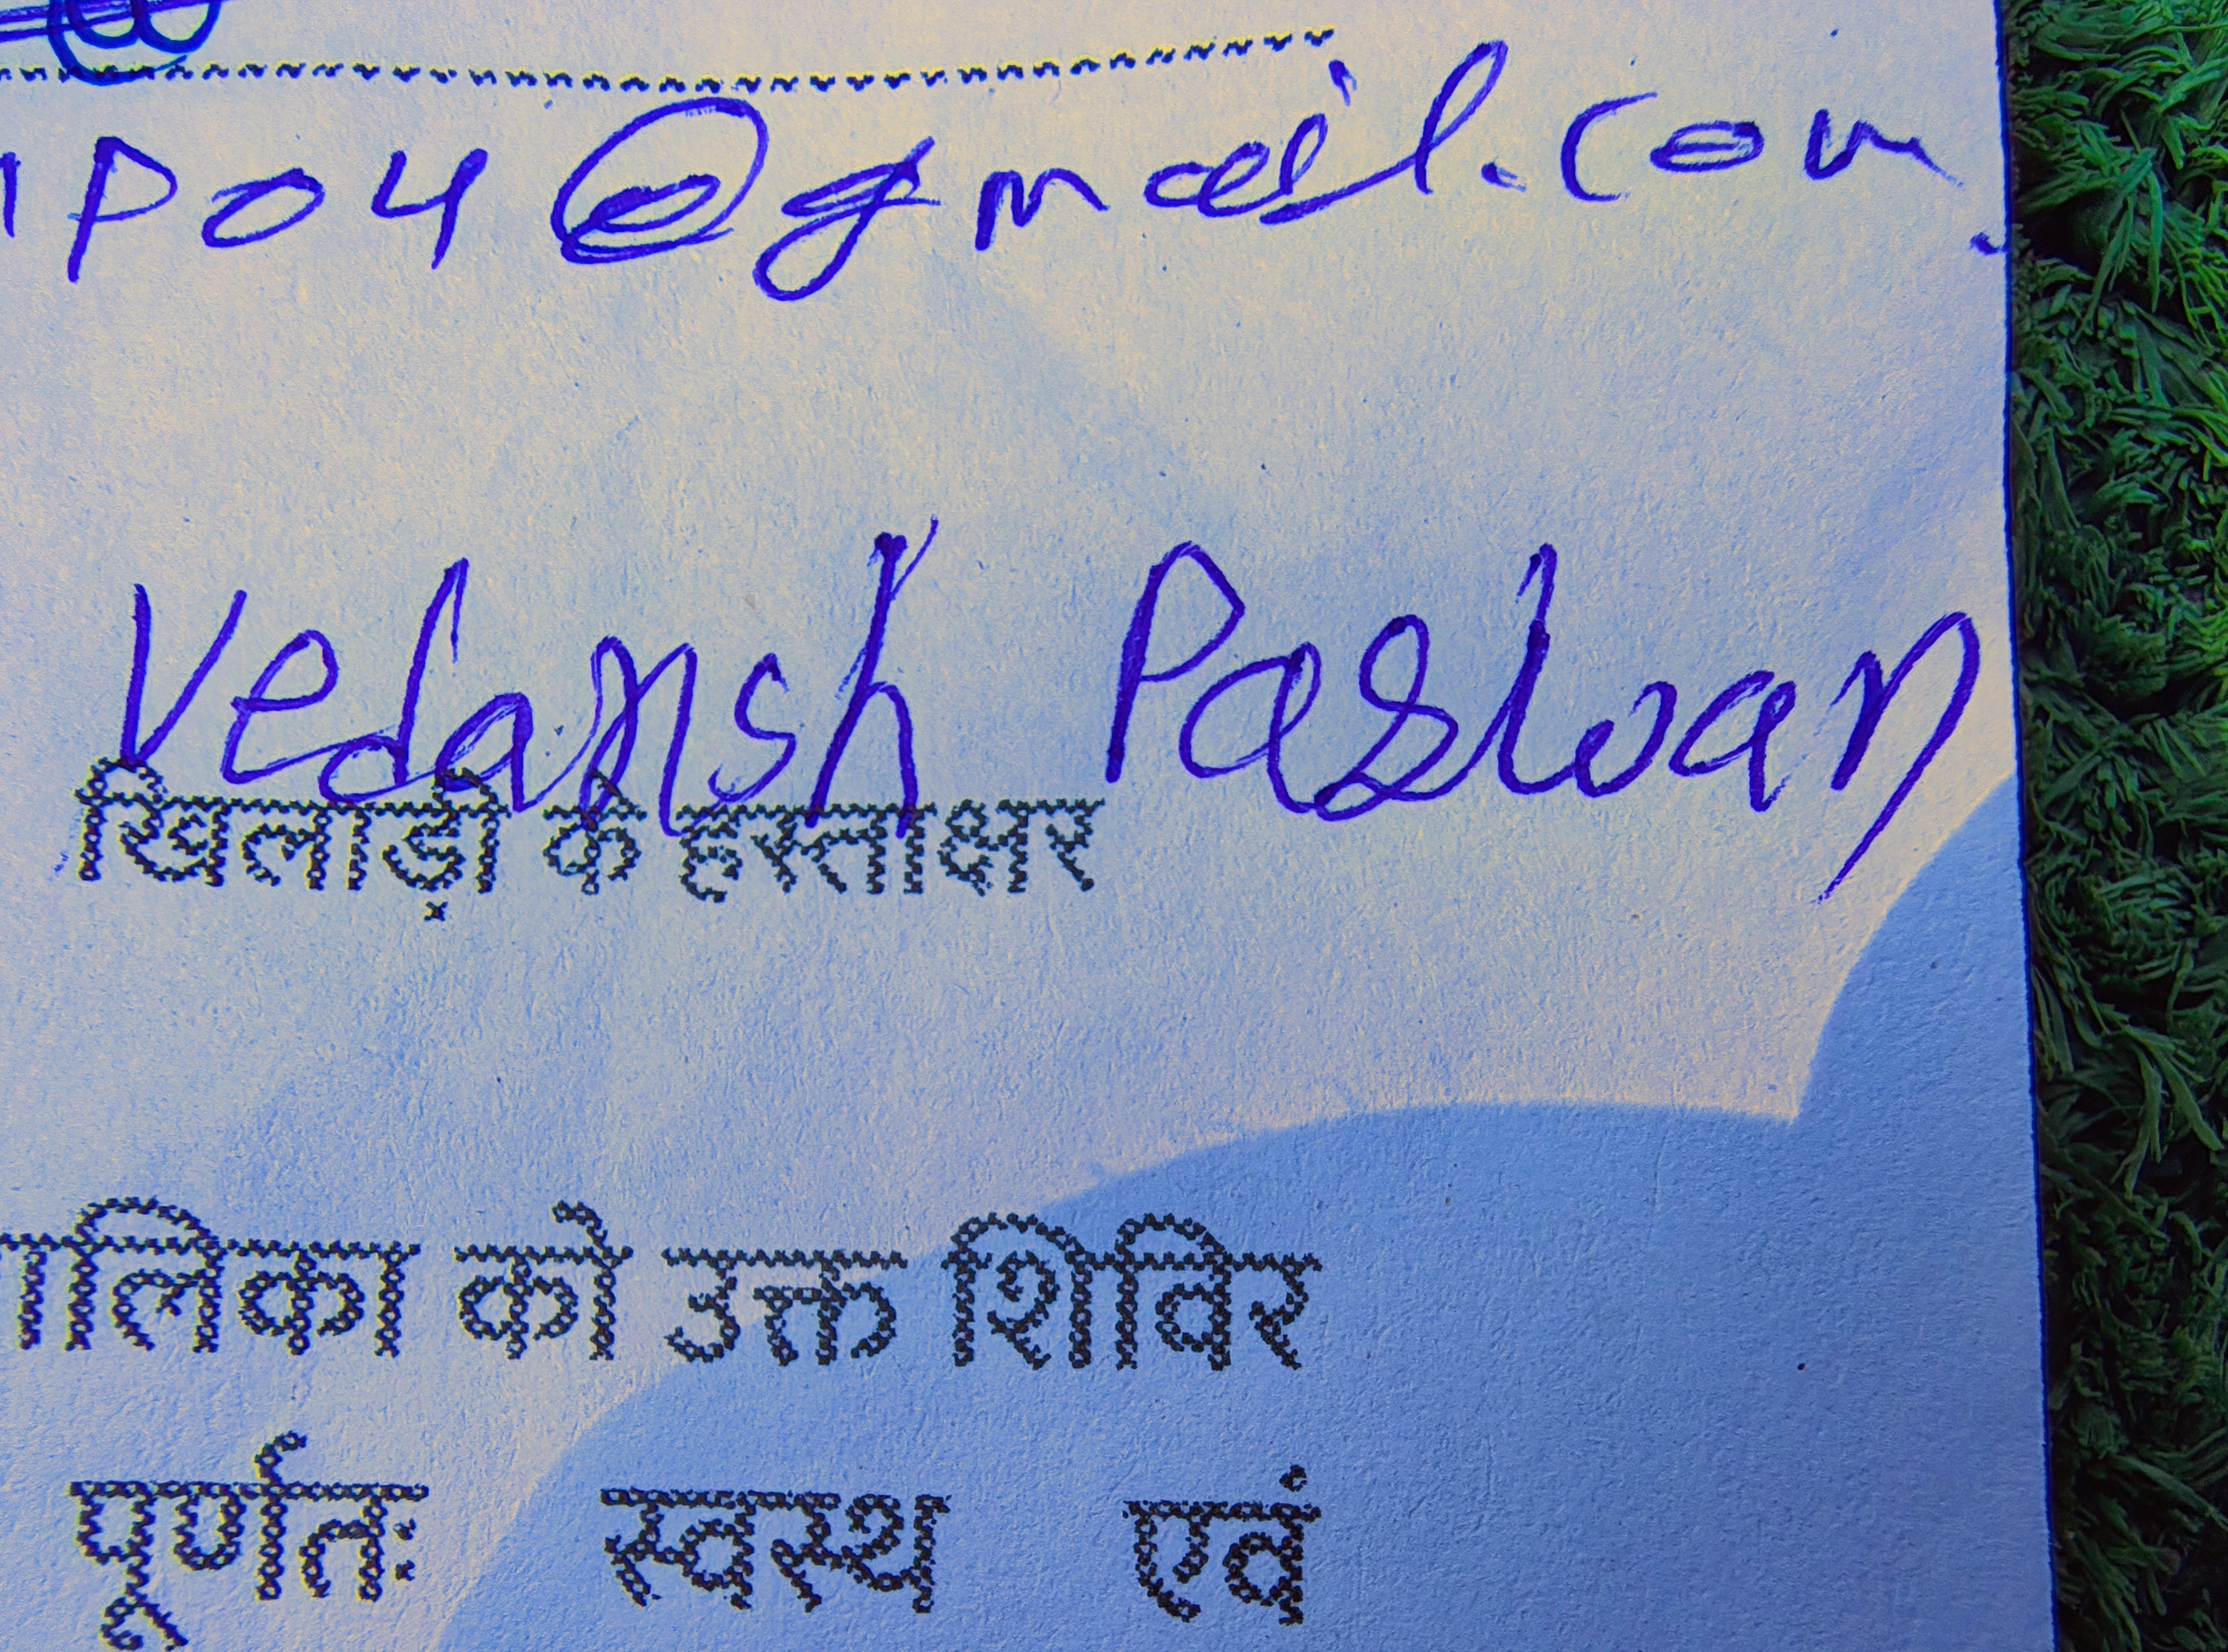 1P04@gmail.com
Vedansh Paswan
खिलाड़ी के हस्ताक्षर
ालिका को उक्त शिविर
पूर्णतः स्वस्थ एवं